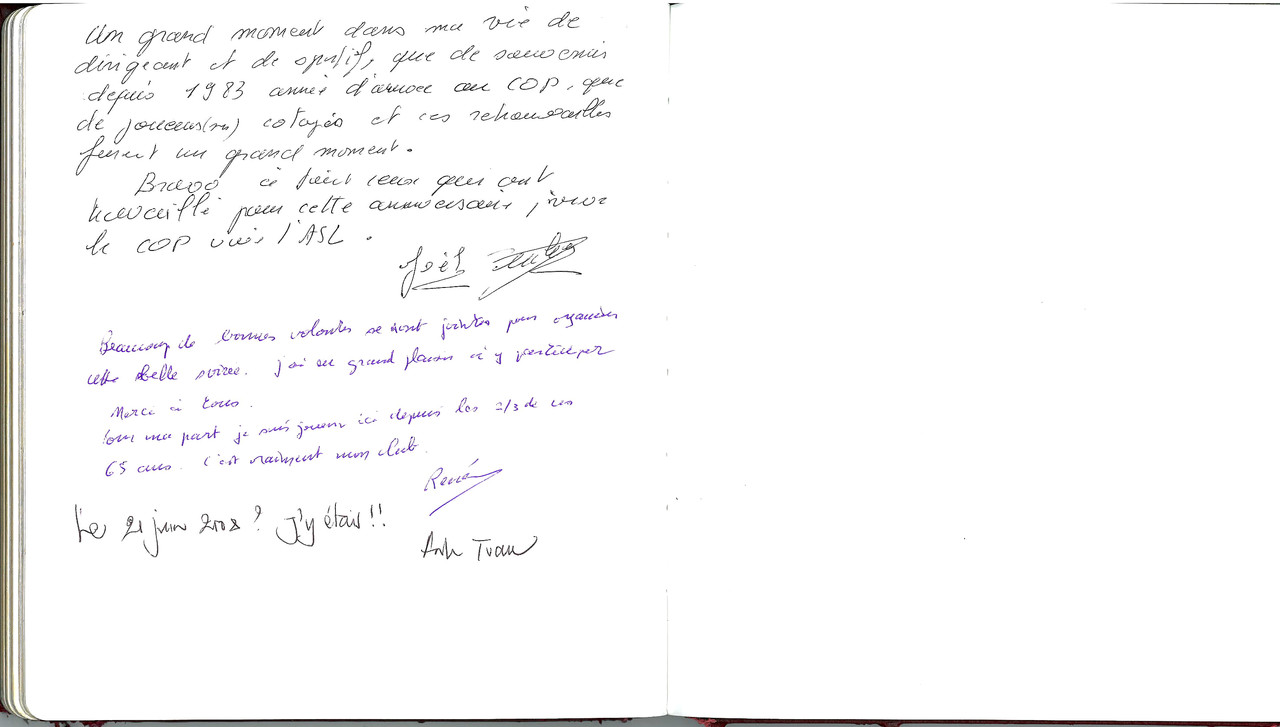 Un grand moment dans ma vie de
dirigeant et de sportif, que de souvenirs
depuis 1983 année d'arrivée au COP, que
de joueurs(ses) cotoyés et ces retrouvailles
furent un grand moment.
Bravo à tous ceux qui ont
travaillé pour cette anniversaire, vive
le COP vive l'ASL.
Joël
Beaucoup de bonnes volontés se sont jointes pour organiser
cette belle soirée. j'ai eu grand plaisir à y participer
Merci à tous.
Pour ma part je suis joueur ici depuis les 2/3 de ces
65 ans. C'est vraiment mon club.
René
Le 21 juin 2008 ? J'y étais !!
Anh Tuan